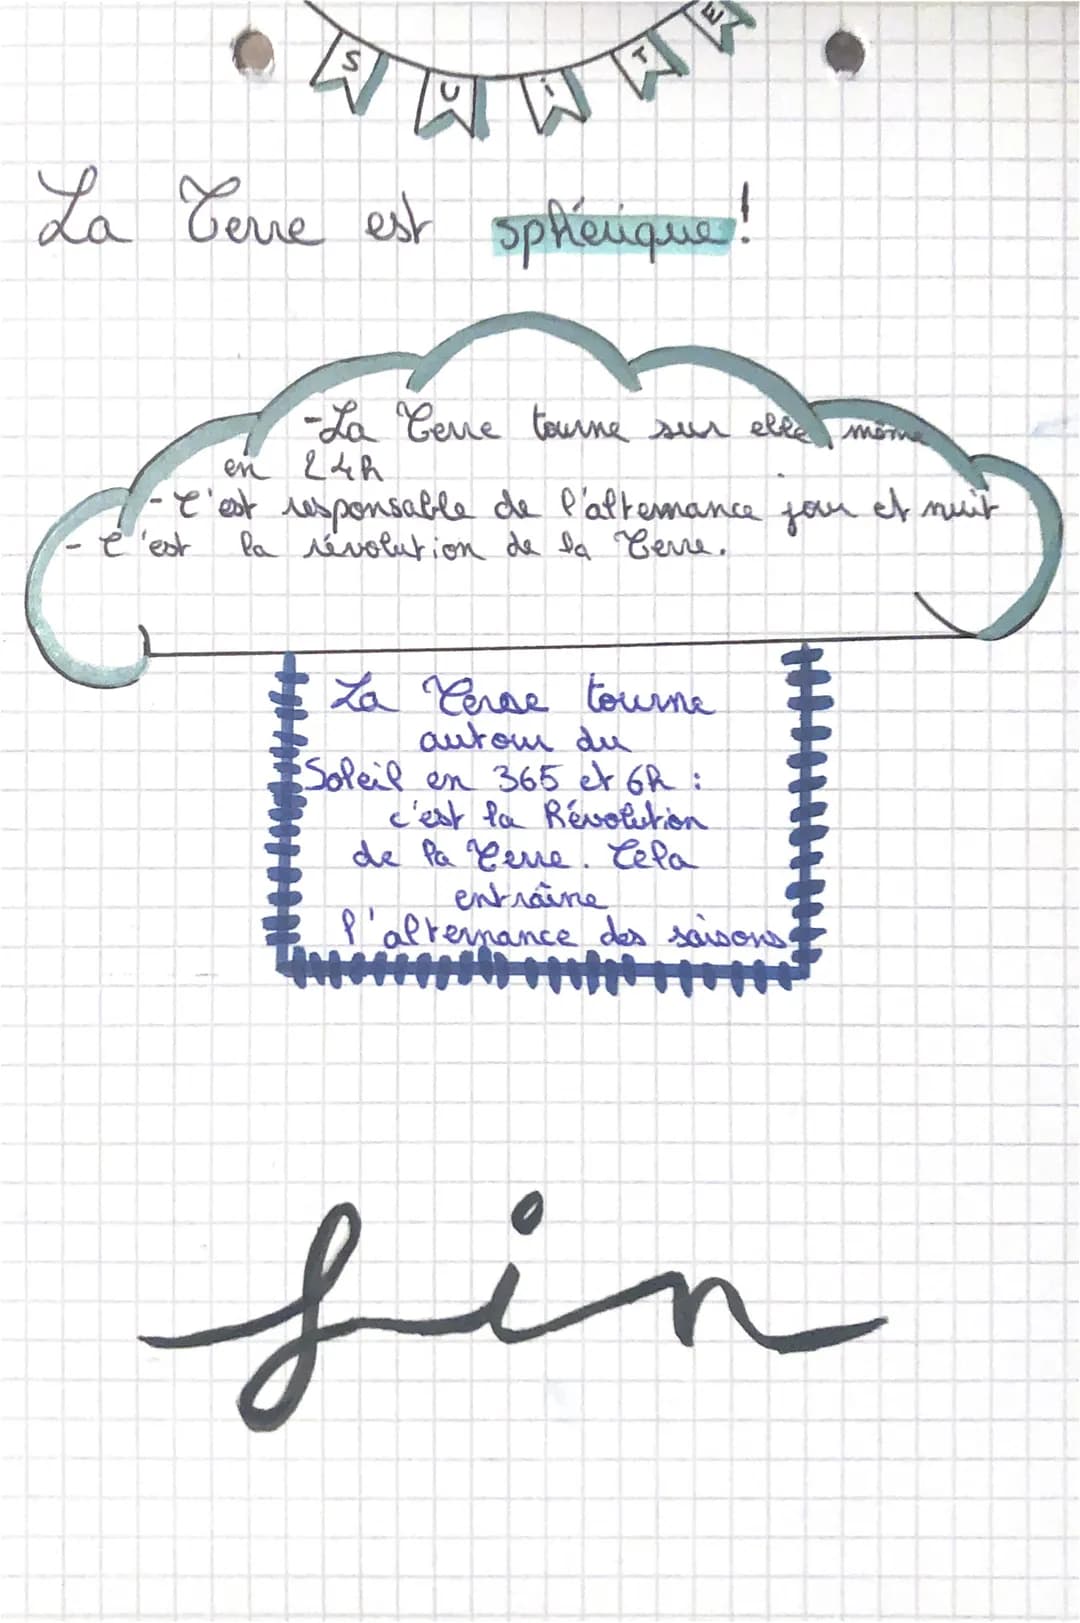 SUITE
La Terre est sphérique!
-La Terre tourne sur elle même
en 24h
- C'est responsable de l'alternance jour et nuit
- C'est la révolution de la Terre.
La Terre tourne
autour du
Soleil en 365 et 6h :
c'est la Révolution
de la Terre. Cela
entraîne
l'alternance des saisons
fin